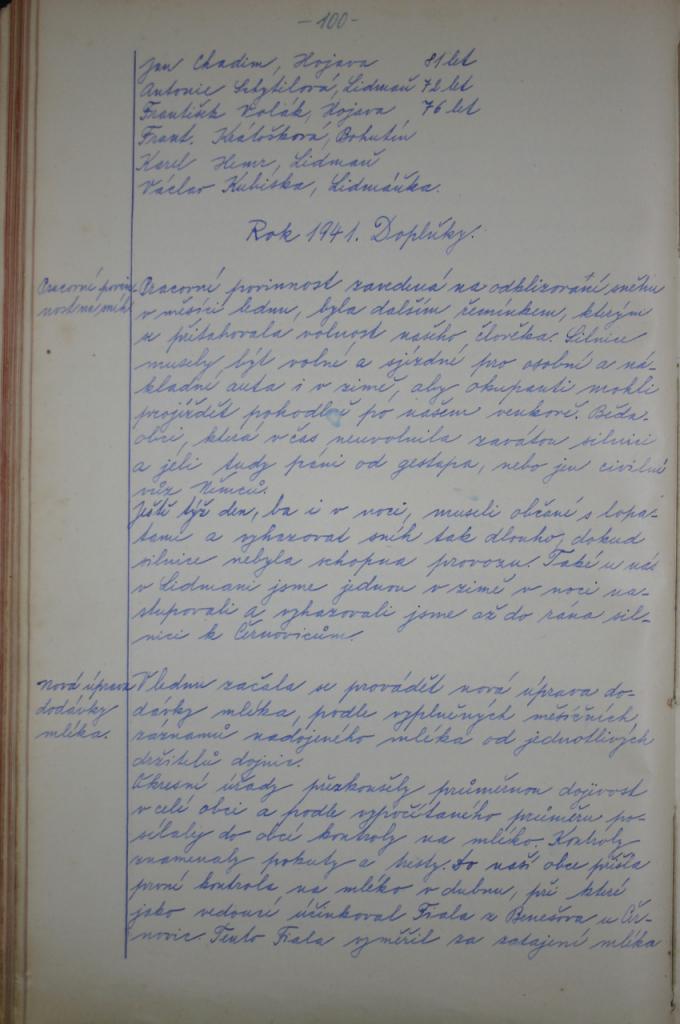 - 100 -
Jan Chadim, Hojava 81 let
Antonie Schytilová, Lidmaň 72 let
František Volák, Hojava 76 let
Frant. Králošková, Bohutín
Karel Hemr, Lidmaň
Václav Kubiska, Lidmaňka.
Rok 1941. Doplňky.
Pracovní povin-
nost na sníh
Pracovní povinnost zavedená na odklizování sněhu
v měsíci lednu, byla dalším řemínkem, kterým
se přitahovala volnost našeho člověka. Silnice
musely být volné a sjízdné pro osobní a ná-
kladní auta i v zimě, aby okupanti mohli
projíždět pohodlně po našem venkově. Běda
obci, která včas neuvolnila zavátou silnici
a jeli tudy páni od gestapa, nebo jen civilní
vůz Němců.
Ještě týž den, ba i v noci, museli občané s lopa-
tami a vyhazovat sníh tak dlouho, dokud
silnice nebyla schopna provozu. Také u nás
v Lidmani jsme jednou v zimě v noci na-
stupovali a vyhazovali jsme až do rána sil-
nici k Černovicům.
Nová úprava
dodávky
mléka.
V lednu začala se provádět nová úprava do-
dávky mléka, podle vyplněných měsíčních
záznamů nadojeného mléka od jednotlivých
držitelů dojnic.
Okresní úřady přezkoušely průměrnou dojivost
v celé obci a podle vypočítaného průměru po-
sílaly do obcí kontroly na mléko. Kontroly
znamenaly pokuty a tresty. Do naší obce přišla
první kontrola na mléko v dubnu, při které
jako vedoucí účinkoval Fiala z Benešova u Čer-
novic. Tento Fiala vyměřil za zatajení mléka